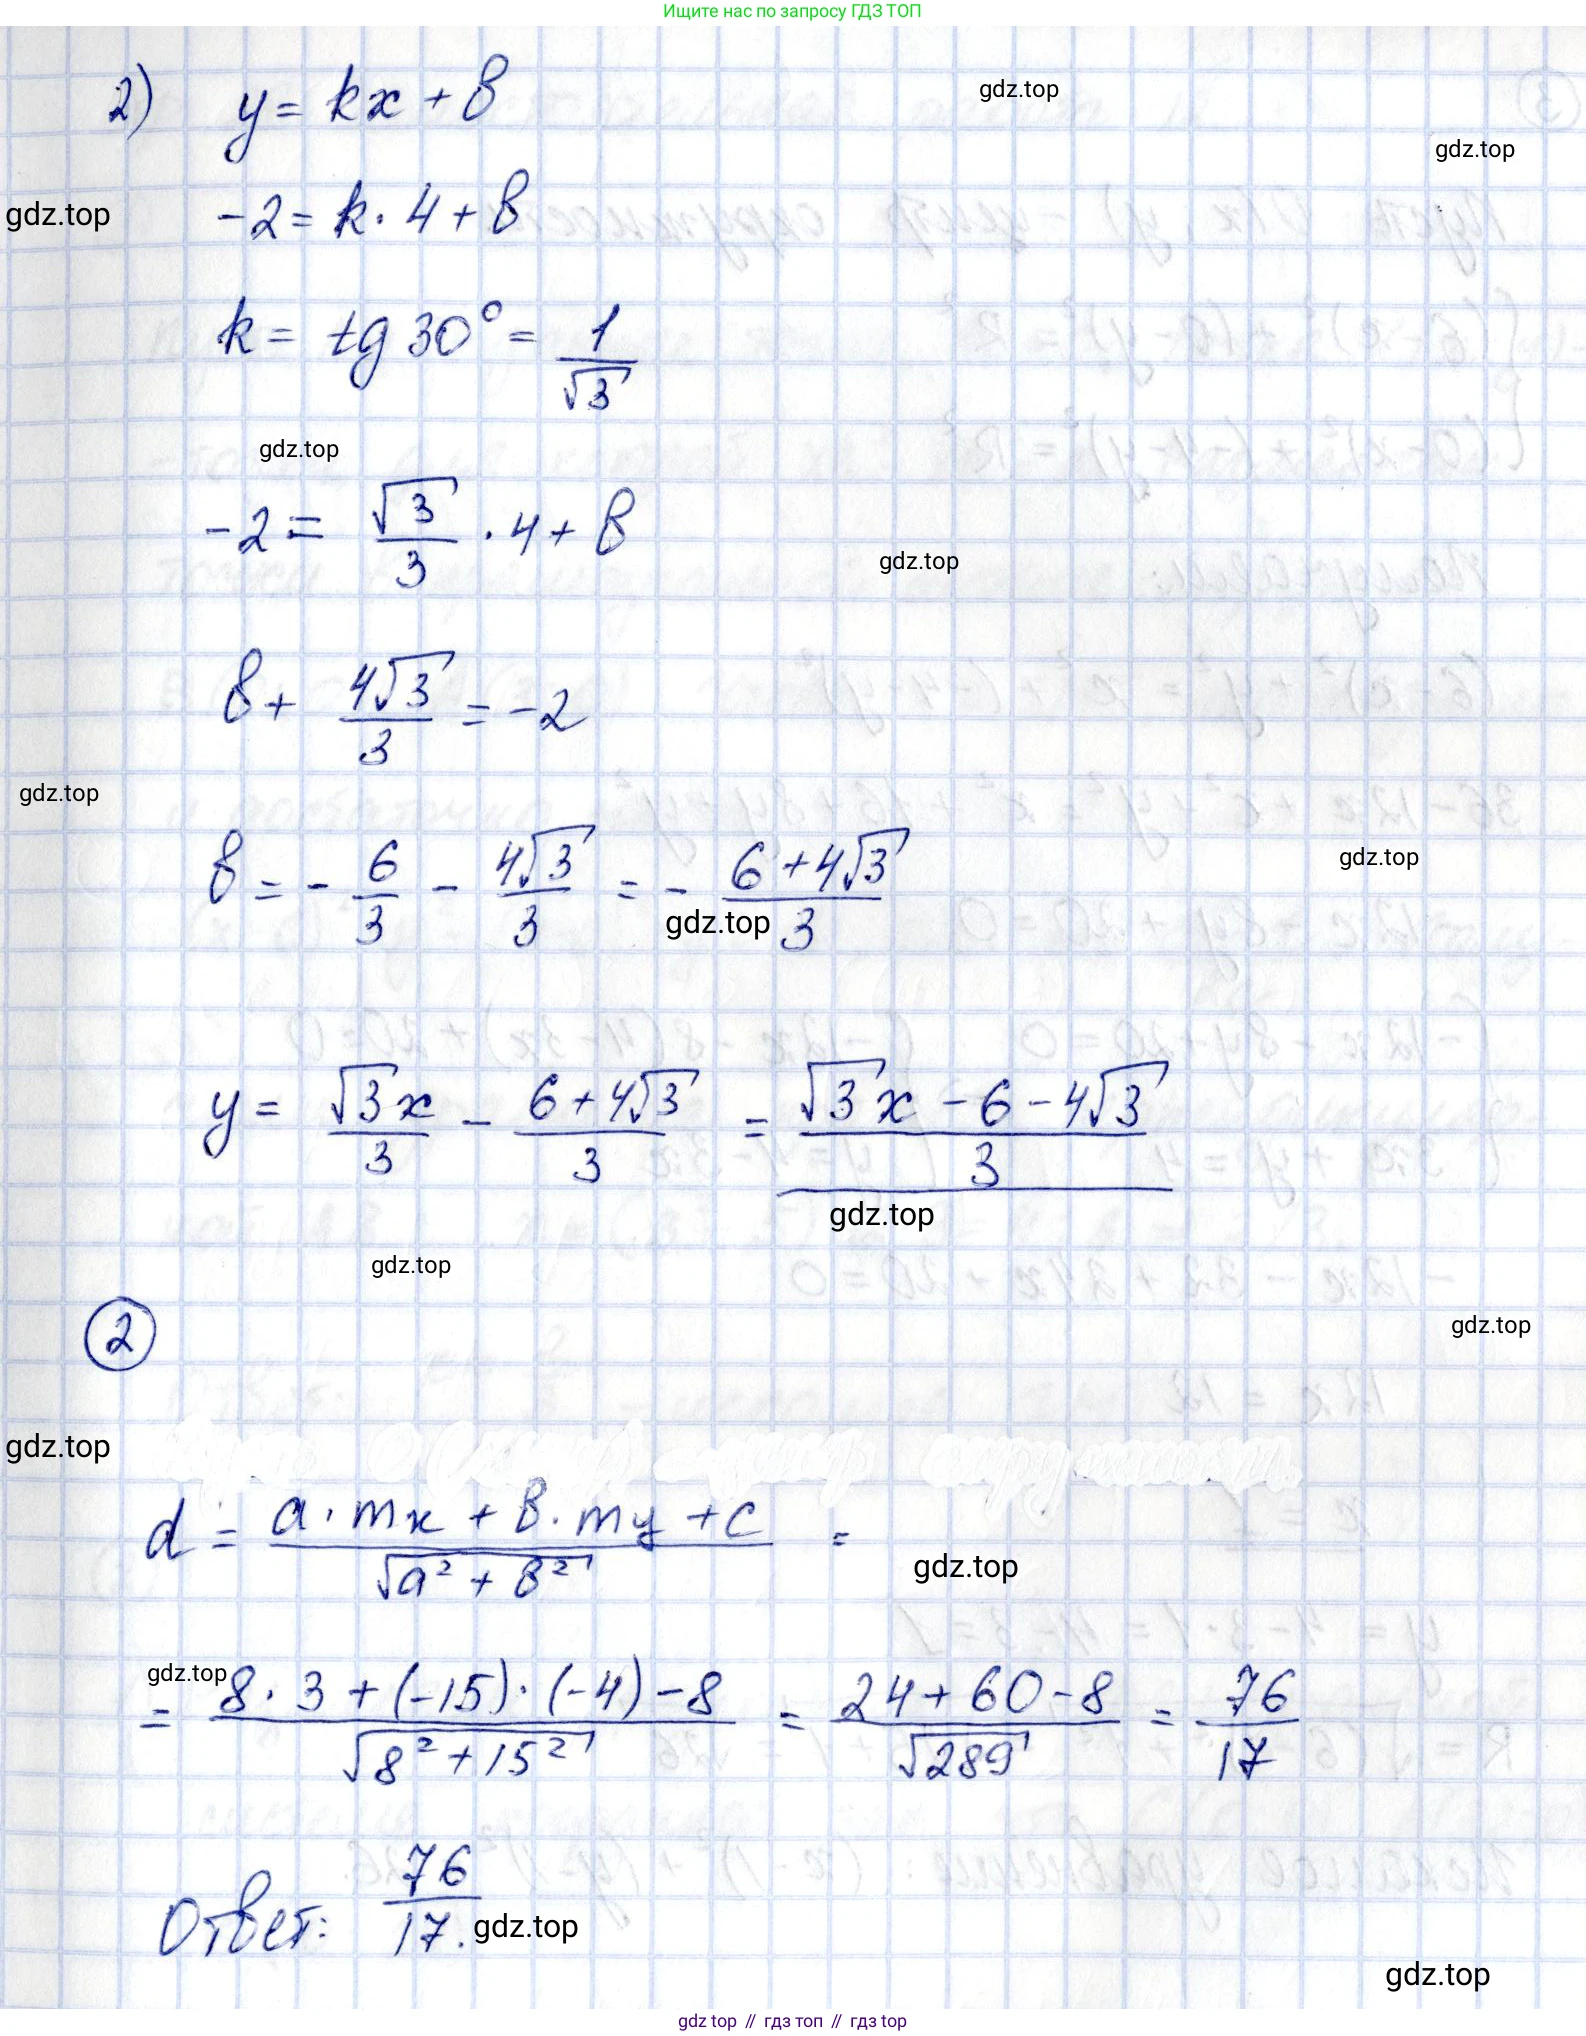 Ищите нас по запросу ГДЗ ТОП
2) y = kx + b
gdz.top
gdz.top
-2 = k · 4 + b
gdz.top
k = tg 30° = 1/√3
gdz.top
-2 = √3/3 · 4 + b
gdz.top
b + 4√3/3 = -2
gdz.top
b = - 6/3 - 4√3/3 = - (6 + 4√3)/3
gdz.top
gdz.top
y = √3x/3 - (6 + 4√3)/3 = (√3x - 6 - 4√3)/3
gdz.top
gdz.top
2
gdz.top
gdz.top
d = (a · mx + b · my + c)/√(a² + b²) =
gdz.top
gdz.top
= (8 · 3 + (-15) · (-4) - 8)/√(8² + 15²) = (24 + 60 - 8)/√289 = 76/17
Ответ: 76/17.
gdz.top
gdz.top
gdz top // гдз топ // гдз top